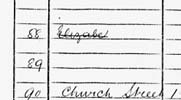 88 Elizabe
89
90 Church Street 1